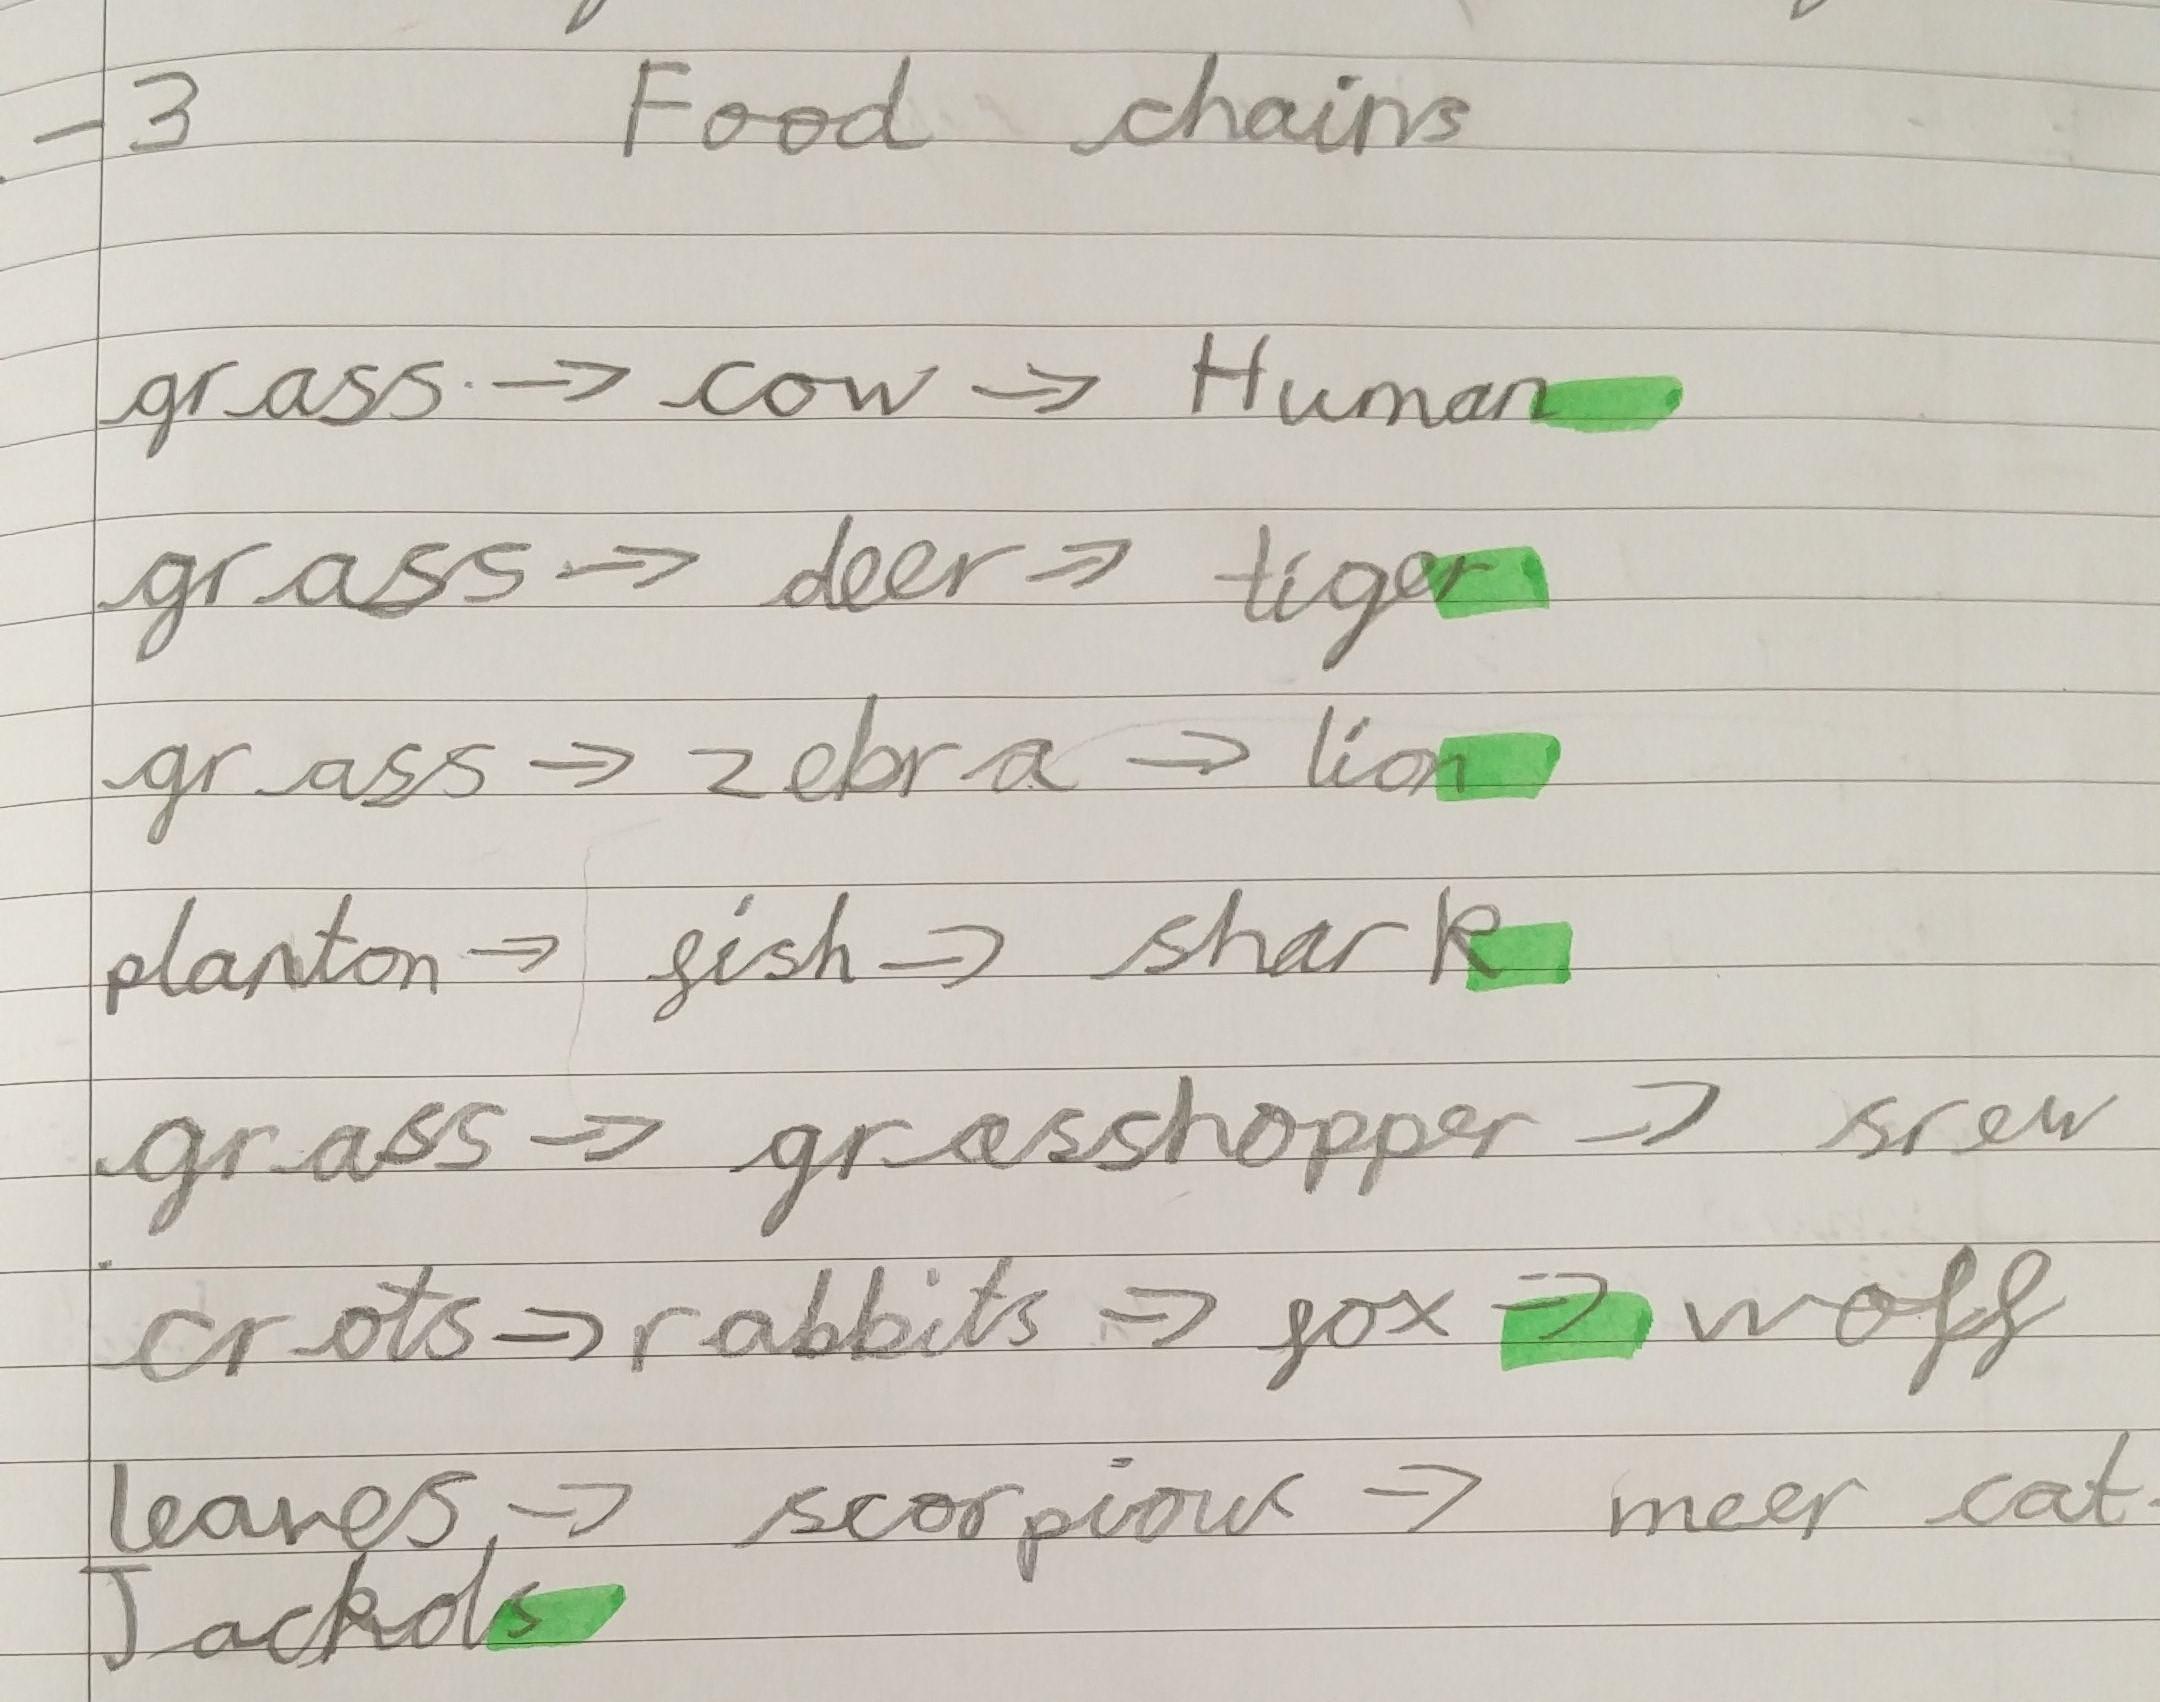 -3 Food chains
grass → cow → Human
grass → deer → tiger
grass → zebra → lion
planton → fish → shark
grass → grasshopper → srew
crots → rabbits → fox → woff
leaves → scorpious → meer cat
Jackals